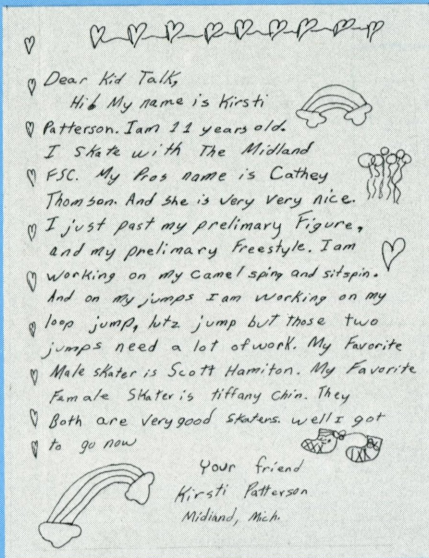 Dear Kid Talk,
Hi! My name is Kirsti
Patterson. Iam 11 years old.
I Skate with The Midland
FSC. My Pros name is Cathey
Thomson. And she is very very nice.
I just past my prelimary Figure,
and my prelimary Freestyle. Iam
working on my camel sping and sitspin.
And on my jumps I am working on my
loop jump, lutz jump but those two
jumps need a lot of work. My Favorite
Male skater is Scott Hamiton. My Favorite
Female Skater is tiffany Chin. They
Both are very good skaters. well I got
to go now
Your friend
Kirsti Patterson
Midland, Mich.